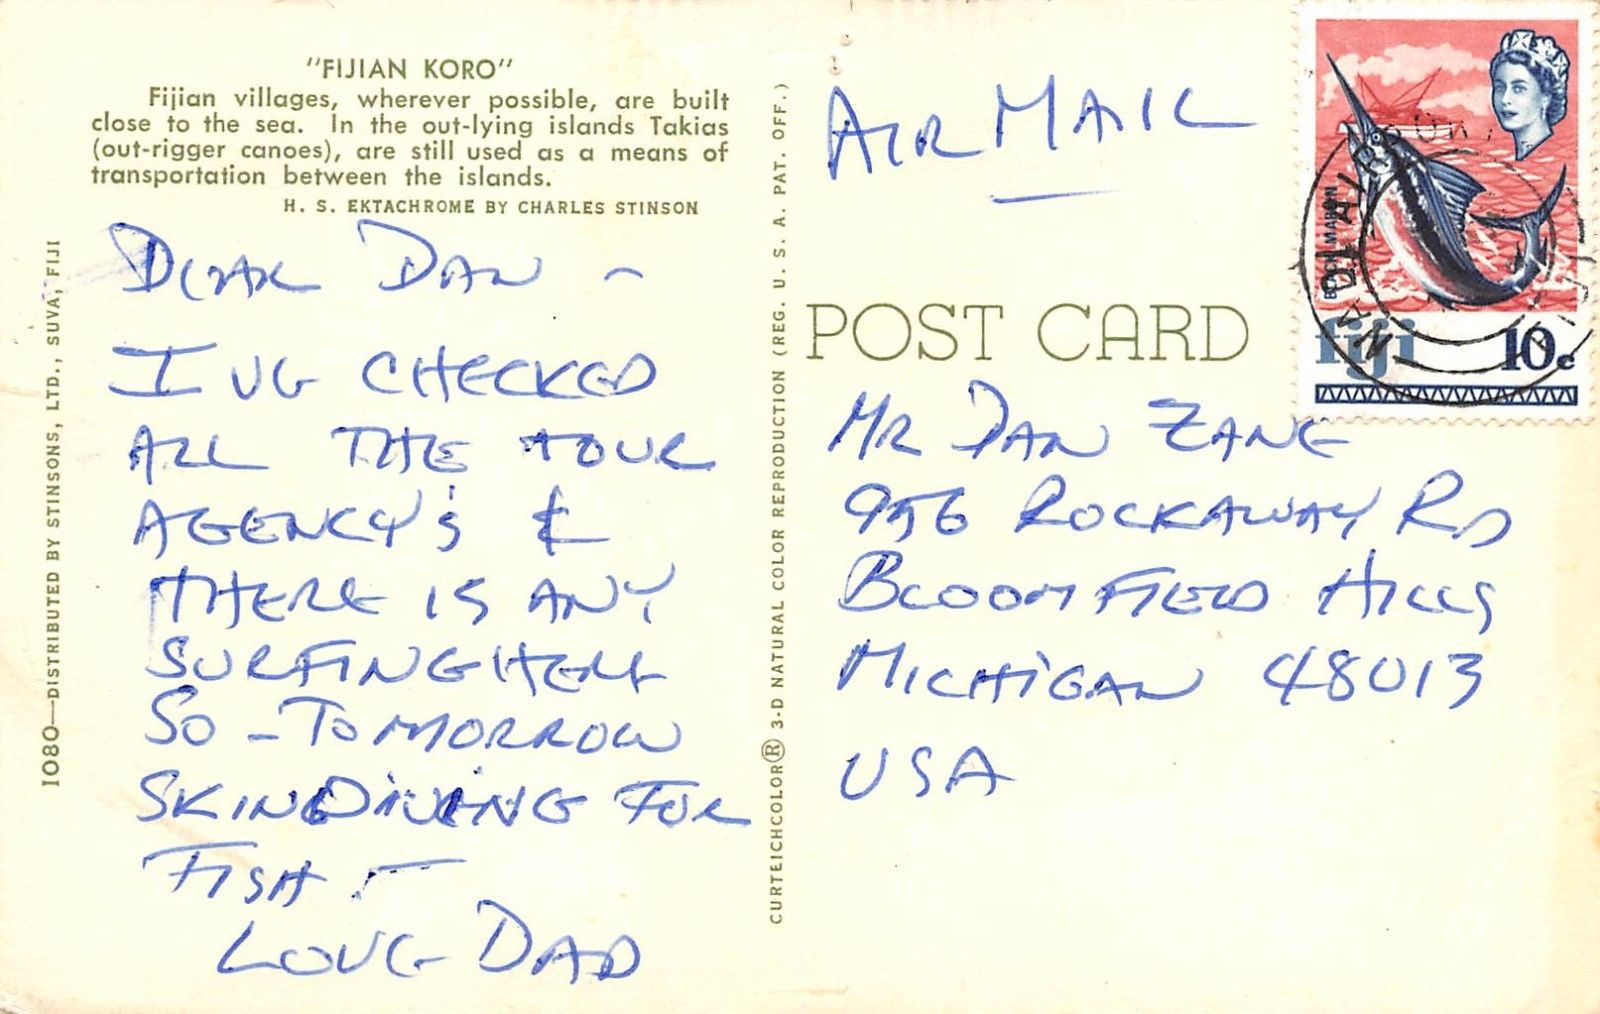 "FIJIAN KORO"
Fijian villages, wherever possible, are built
close to the sea. In the out-lying islands Takias
(out-rigger canoes), are still used as a means of
transportation between the islands.
H. S. EKTACHROME BY CHARLES STINSON
1080—DISTRIBUTED BY STINSONS, LTD., SUVA, FIJI
DEAR DAN –
I VE CHECKED
ALL THE TOUR
AGENCY'S &
THERE IS ANY
SURFING HERE
SO – TOMORROW
SKINDIVING FOR
FISH –
LOVE DAD
CURTEICHCOLOR® 3-D NATURAL COLOR REPRODUCTION (REG. U. S. A. PAT. OFF.)
AIR MAIL
POST CARD
MR DAN ZANE
956 ROCKAWAY RD
BLOOMFIELD HILLS
MICHIGAN 48013
USA
BLACK MARLIN
fiji 10c
NADI AIRPORT